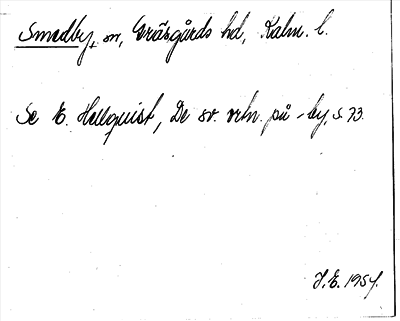 Smedby, sn, Gräsgårds hd, Kalm. l.
Se E. Hellquist, De sv. ortn. på -by, s. 73.
J.E. 1954.